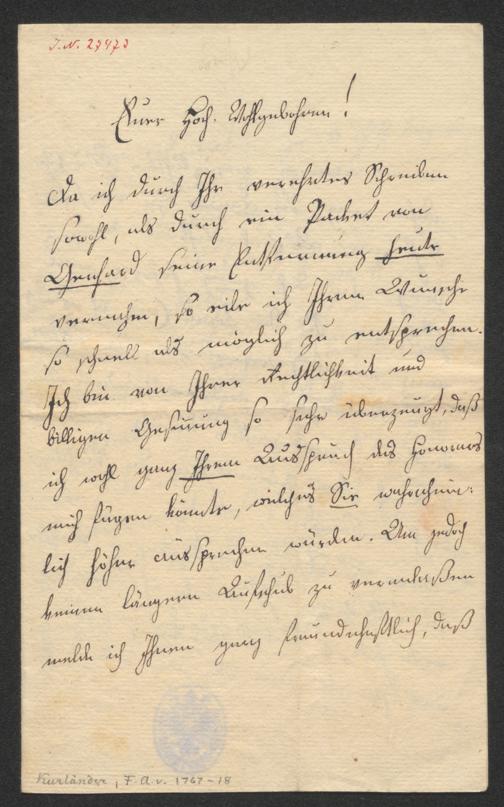 I.N. 27473
Euer Hoch. Wohlgebohren!
Da ich durch Ihr verehrtes Schreiben
sowohl, als durch ein Packet von
seine Entfernung heute
vernehme, so eile ich Ihrem Wunsche
so schnell als möglich zu entsprechen.
Ich bin von Ihrer Rechtlichkeit und
billigen Gesinnung so sehr überzeugt, daß
ich wohl ganz Ihrem Ausspruch des Honorars
mich fügen könnte, welches Sie wahrschein-
lich höher aussprechen würden. Um jedoch
keinen längern Aufschub zu veranlaßen
melde ich Ihnen ganz freundschaftlich, daß
Kurländer, F. A. v. 1767-18